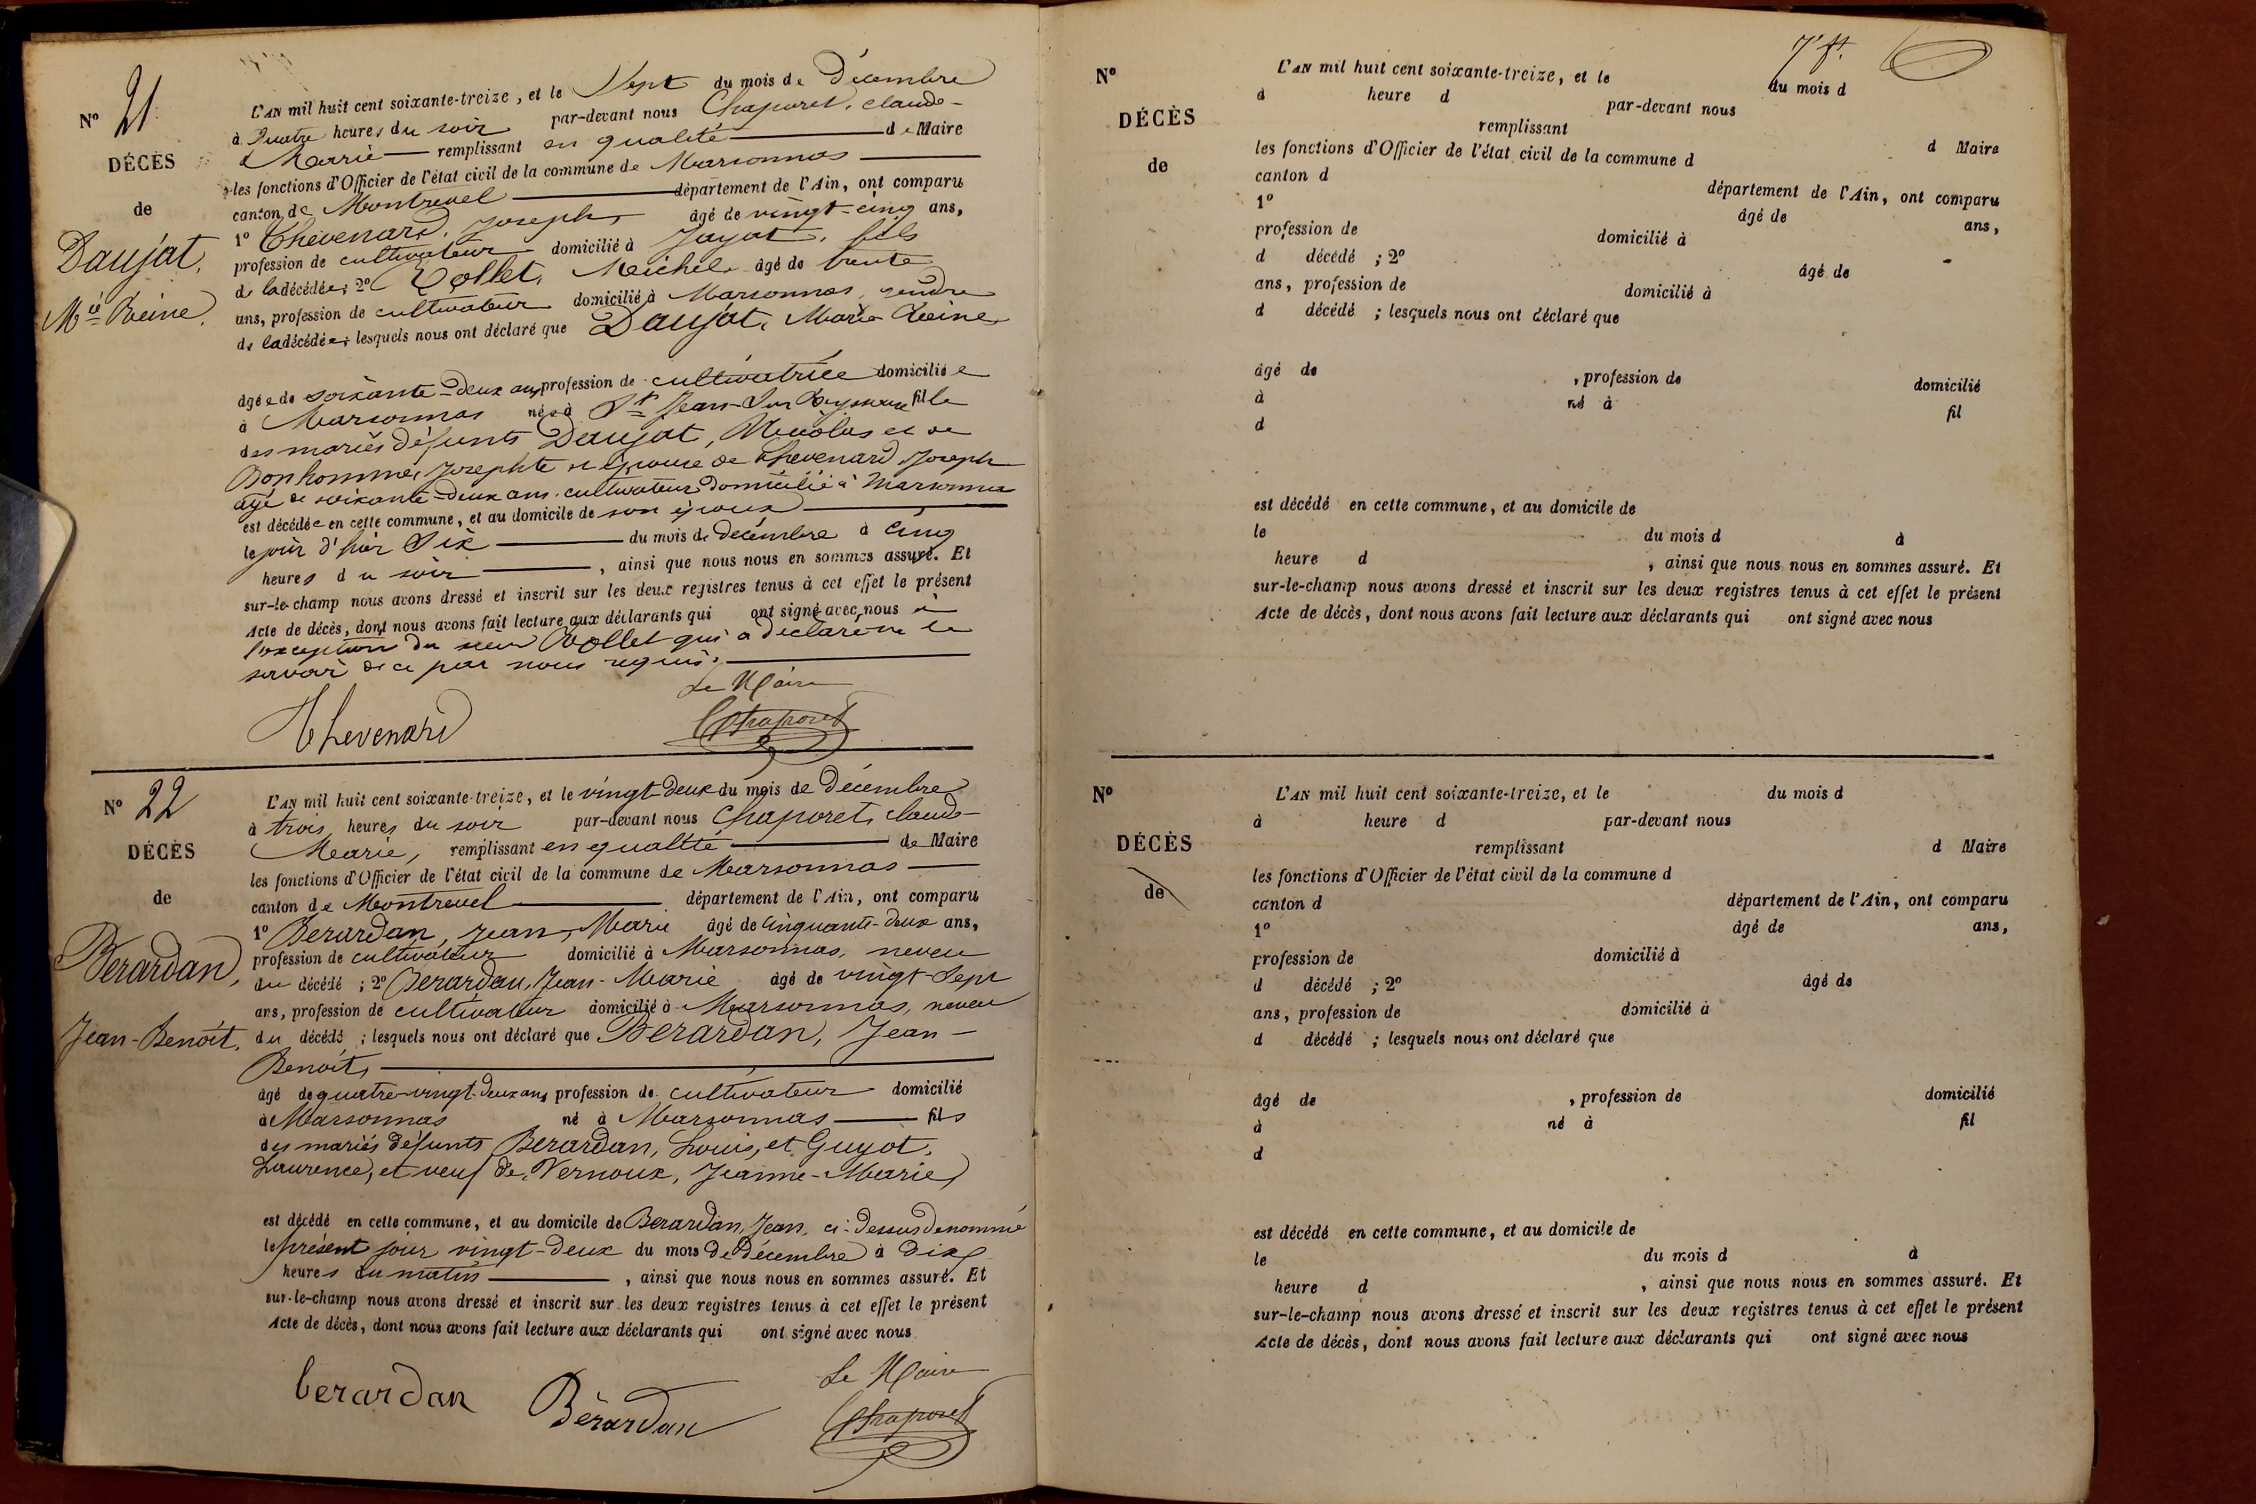 N° 21
DÉCÈS
de
Daujat,
Mie Reine.
L'AN mil huit cent soixante-treize, et le Sept du mois de Décembre
à Quatre heures du soir par-devant nous Chaporet, claude-
Marie remplissant en qualité de Maire
les fonctions d'Officier de l'état civil de la commune de Marsonnas
canton de Montrevel département de l'Ain, ont comparu
1° Chevenard, Joseph, âgé de vingt-cinq ans,
profession de cultivateur domicilié à Jayat, fils
de la décédée; 2° Vollet, Michel âgé de trente
ans, profession de cultivateur domicilié à Marsonnas, gendre
de la décédée; lesquels nous ont déclaré que Daujat, Marie Reine
âgée de soixante-deux ans profession de cultivatrice domiciliée
à Marsonnas née à St Jean-Sur Reyssouze fille
des mariés défunts Daujat, Nicolas et de
Bonhomme, Josephte et épouse de Chevenard, Joseph
agé de soixante-deux ans, cultivateur domicilié à Marsonnas
est décédée en cette commune, et au domicile de son époux
le jour d'hier Six du mois de décembre à Cinq
heures du soir, ainsi que nous nous en sommes assuré. Et
sur-le-champ nous avons dressé et inscrit sur les deux registres tenus à cet effet le présent
Acte de décès, dont nous avons fait lecture aux déclarants qui ont signé avec nous à
l'exception du sieur Vollet qui a déclaré ne le
savoir de ce par nous requis.
Le Maire
Chevenard Chaporet
N° 22
DÉCÈS
de
Berardan,
Jean-Benoît,
L'AN mil huit cent soixante-treize, et le vingt-deux du mois de Décembre
à trois heures du soir par-devant nous Chaporet, claude-
Marie, remplissant en qualité de Maire
les fonctions d'Officier de l'état civil de la commune de Marsonnas
canton de Montrevel département de l'Ain, ont comparu
1° Berardan, Jean, Marie âgé de Cinquante-deux ans,
profession de cultivateur domicilié à Marsonnas, neveu
du décédé ; 2° Berardan, Jean-Marie âgé de vingt-Sept
ans, profession de cultivateur domicilié à Marsonnas, neveu
du décédé ; lesquels nous ont déclaré que Berardan, Jean-
Benoît,
âgé de quatre-vingt-deux ans profession de cultivateur domicilié
à Marsonnas né à Marsonnas fils
des mariés défunts Berardan, Louis, et Guyot,
Laurence, et veuf de Vernoux, Jeanne-Marie,
est décédé en cette commune, et au domicile de Berardan, Jean, ci-Dessus Denommé
le présent jour vingt-deux du mois de Décembre à dix
heures du matin, ainsi que nous nous en sommes assuré. Et
sur-le-champ nous avons dressé et inscrit sur les deux registres tenus à cet effet le présent
Acte de décès, dont nous avons fait lecture aux déclarants qui ont signé avec nous
Le Maire
berardan Bérardan Chaporet
7e ft.
N°
DÉCÈS
de
L'AN mil huit cent soixante-treize, et le du mois d
à heure d par-devant nous
remplissant d Maire
les fonctions d'Officier de l'état civil de la commune d
canton d département de l'Ain, ont comparu
1° âgé de ans,
profession de domicilié à
d décédé ; 2° âgé de
ans, profession de domicilié à
d décédé ; lesquels nous ont déclaré que
âgé de , profession de domicilié
à né à fil
d
est décédé en cette commune, et au domicile de
le du mois d à
heure d , ainsi que nous nous en sommes assuré. Et
sur-le-champ nous avons dressé et inscrit sur les deux registres tenus à cet effet le présent
Acte de décès, dont nous avons fait lecture aux déclarants qui ont signé avec nous
N°
DÉCÈS
de
L'AN mil huit cent soixante-treize, et le du mois d
à heure d par-devant nous
remplissant d Maire
les fonctions d'Officier de l'état civil de la commune d
canton d département de l'Ain, ont comparu
1° âgé de ans,
profession de domicilié à
d décédé ; 2° âgé de
ans, profession de domicilié à
d décédé ; lesquels nous ont déclaré que
âgé de , profession de domicilié
à né à fil
d
est décédé en cette commune, et au domicile de
le du mois d à
heure d , ainsi que nous nous en sommes assuré. Et
sur-le-champ nous avons dressé et inscrit sur les deux registres tenus à cet effet le présent
Acte de décès, dont nous avons fait lecture aux déclarants qui ont signé avec nous